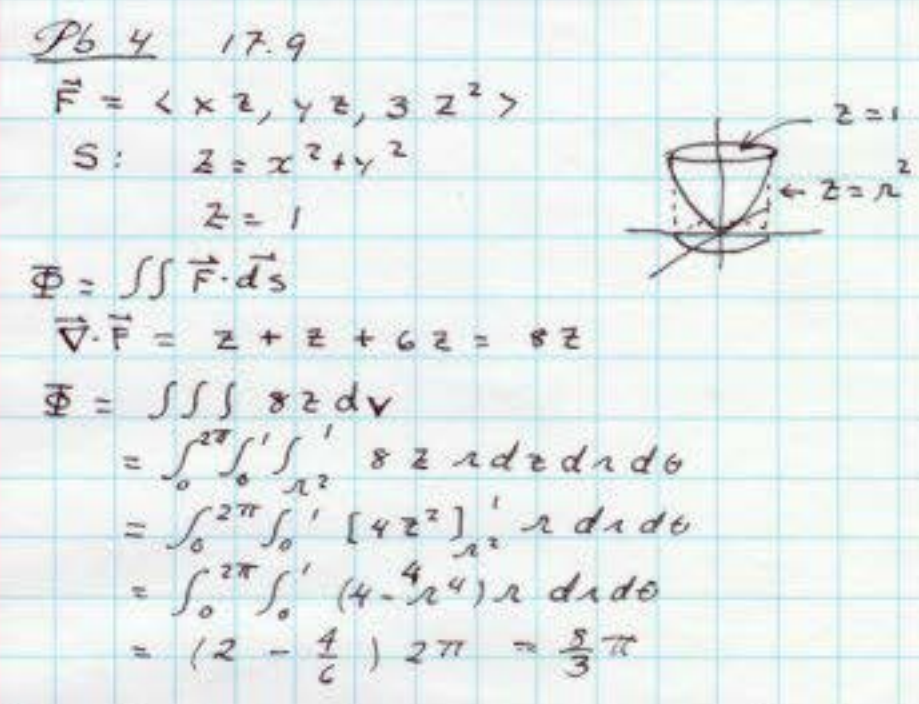 Pb 4 17.9
F⃗ = < x z, y z, 3 z² >
S: z = x² + y²
z = 1
z = 1
← z = r²
Φ = ∫∫ F⃗ · d⃗s
∇⃗ · F⃗ = z + z + 6 z = 8 z
Φ = ∫∫∫ 8 z dv
= ∫₀^2π ∫₀^1 ∫_r²^1 8 z r dz dr dθ
= ∫₀^2π ∫₀^1 [4 z²]_r²^1 r dr dθ
= ∫₀^2π ∫₀^1 (4 - 4 r⁴) r dr dθ
= (2 - 4/6) 2π = 8/3 π